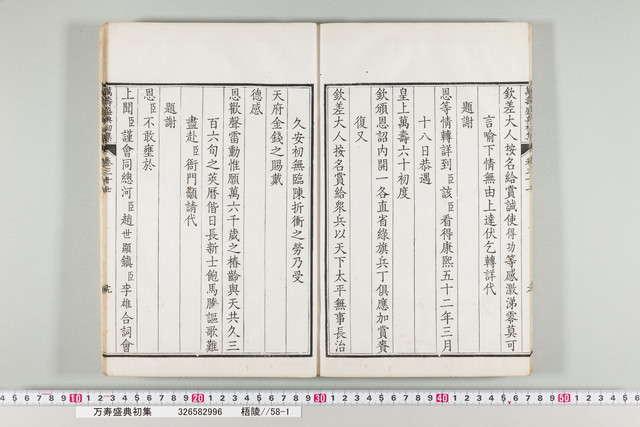 欽差大人按名給賞誠使得功等感激涕零莫可
言喻下情無由上達伏乞轉詳代
題謝
恩等情轉詳到臣該臣看得康熙五十二年三月
十八日恭遇
皇上萬壽六十初度
欽頒恩詔内開一各直省綠旗兵丁俱應加賞賚
復又
欽差大人按名賞給衆兵以天下太平無事長治
久安初無臨陳折衝之勞乃受
天府金錢之賜戴
德感
恩歡聲雷動惟願萬六千歲之椿齡與天共久三
百六旬之蓂曆偕日長新士飽馬騰謳歌難
盡赴臣衙門顒請代
題謝
恩臣不敢壅於
上聞臣謹會同總河臣趙世顯鎮臣李雄合詞會
10 20 30 40 50
万寿盛典初集 326582996 梧陵//58-1